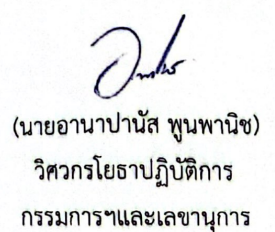 (นายอานาปานัส พูนพานิช)
วิศวกรโยธาปฏิบัติการ
กรรมการฯและเลขานุการ